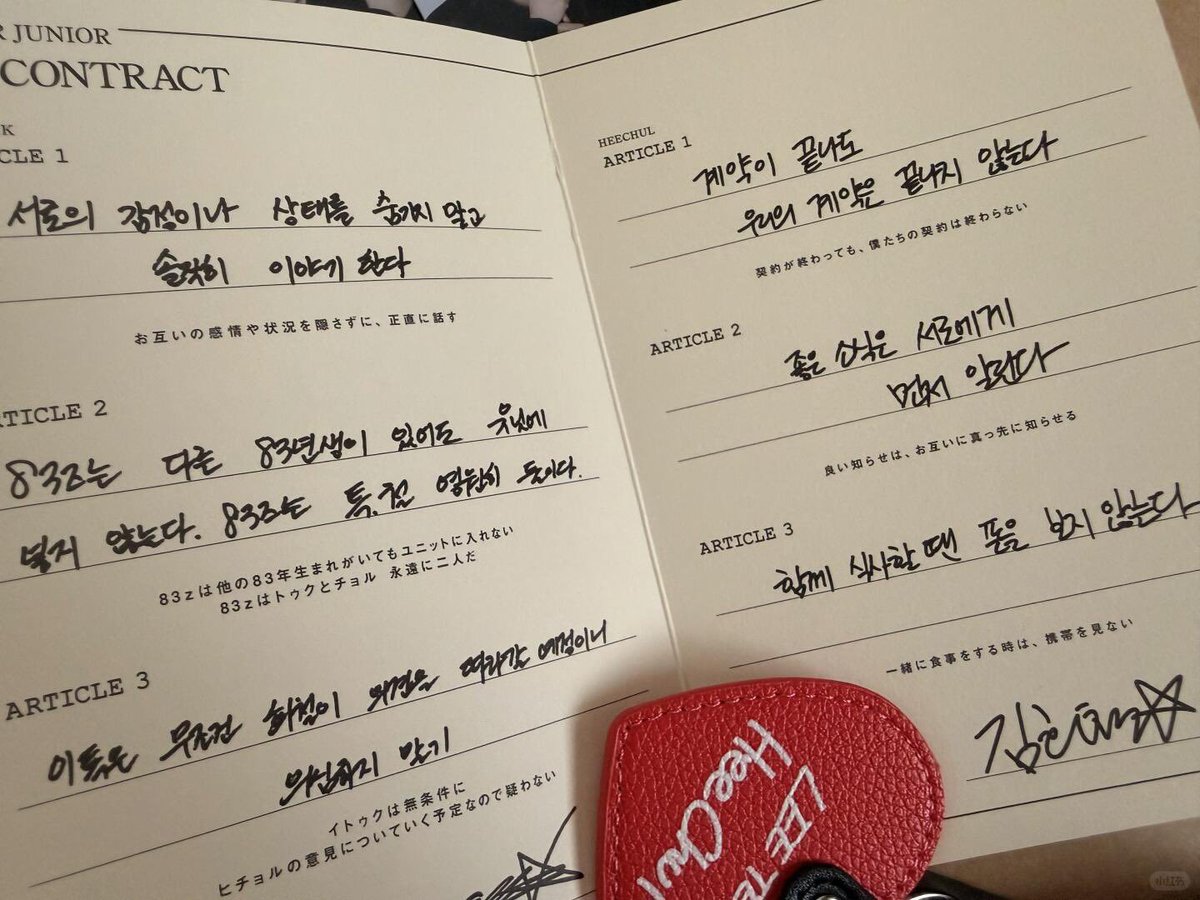 R JUNIOR
CONTRACT
K
CLE 1
서로의 감정이나 상태를 숨기지 말고
솔직히 이야기 한다
お互いの感情や状況を隠さずに、正直に話す
TICLE 2
83z는 다른 83년생이 있어도 유닛에
넣지 않는다. 83z는 특,철 영원히 둘이다.
83zは他の83年生まれがいてもユニットに入れない
83zはトゥクとチョル 永遠に二人だ
ARTICLE 3
이특은 무조건 희철이 의견을 따라갈 예정이니
의심하지 말기
イトゥクは無条件に
ヒチョルの意見についていく予定なので疑わない
HEECHUL
ARTICLE 1
계약이 끝나도
우리의 계약은 끝나지 않는다
契約が終わっても、僕たちの契約は終わらない
ARTICLE 2
좋은 소식은 서로에게
먼저 알린다
良い知らせは、お互いに真っ先に知らせる
ARTICLE 3
함께 식사할 땐 폰을 보지 않는다
一緒に食事をする時は、携帯を見ない
LEE TE
HeeChul
小红书